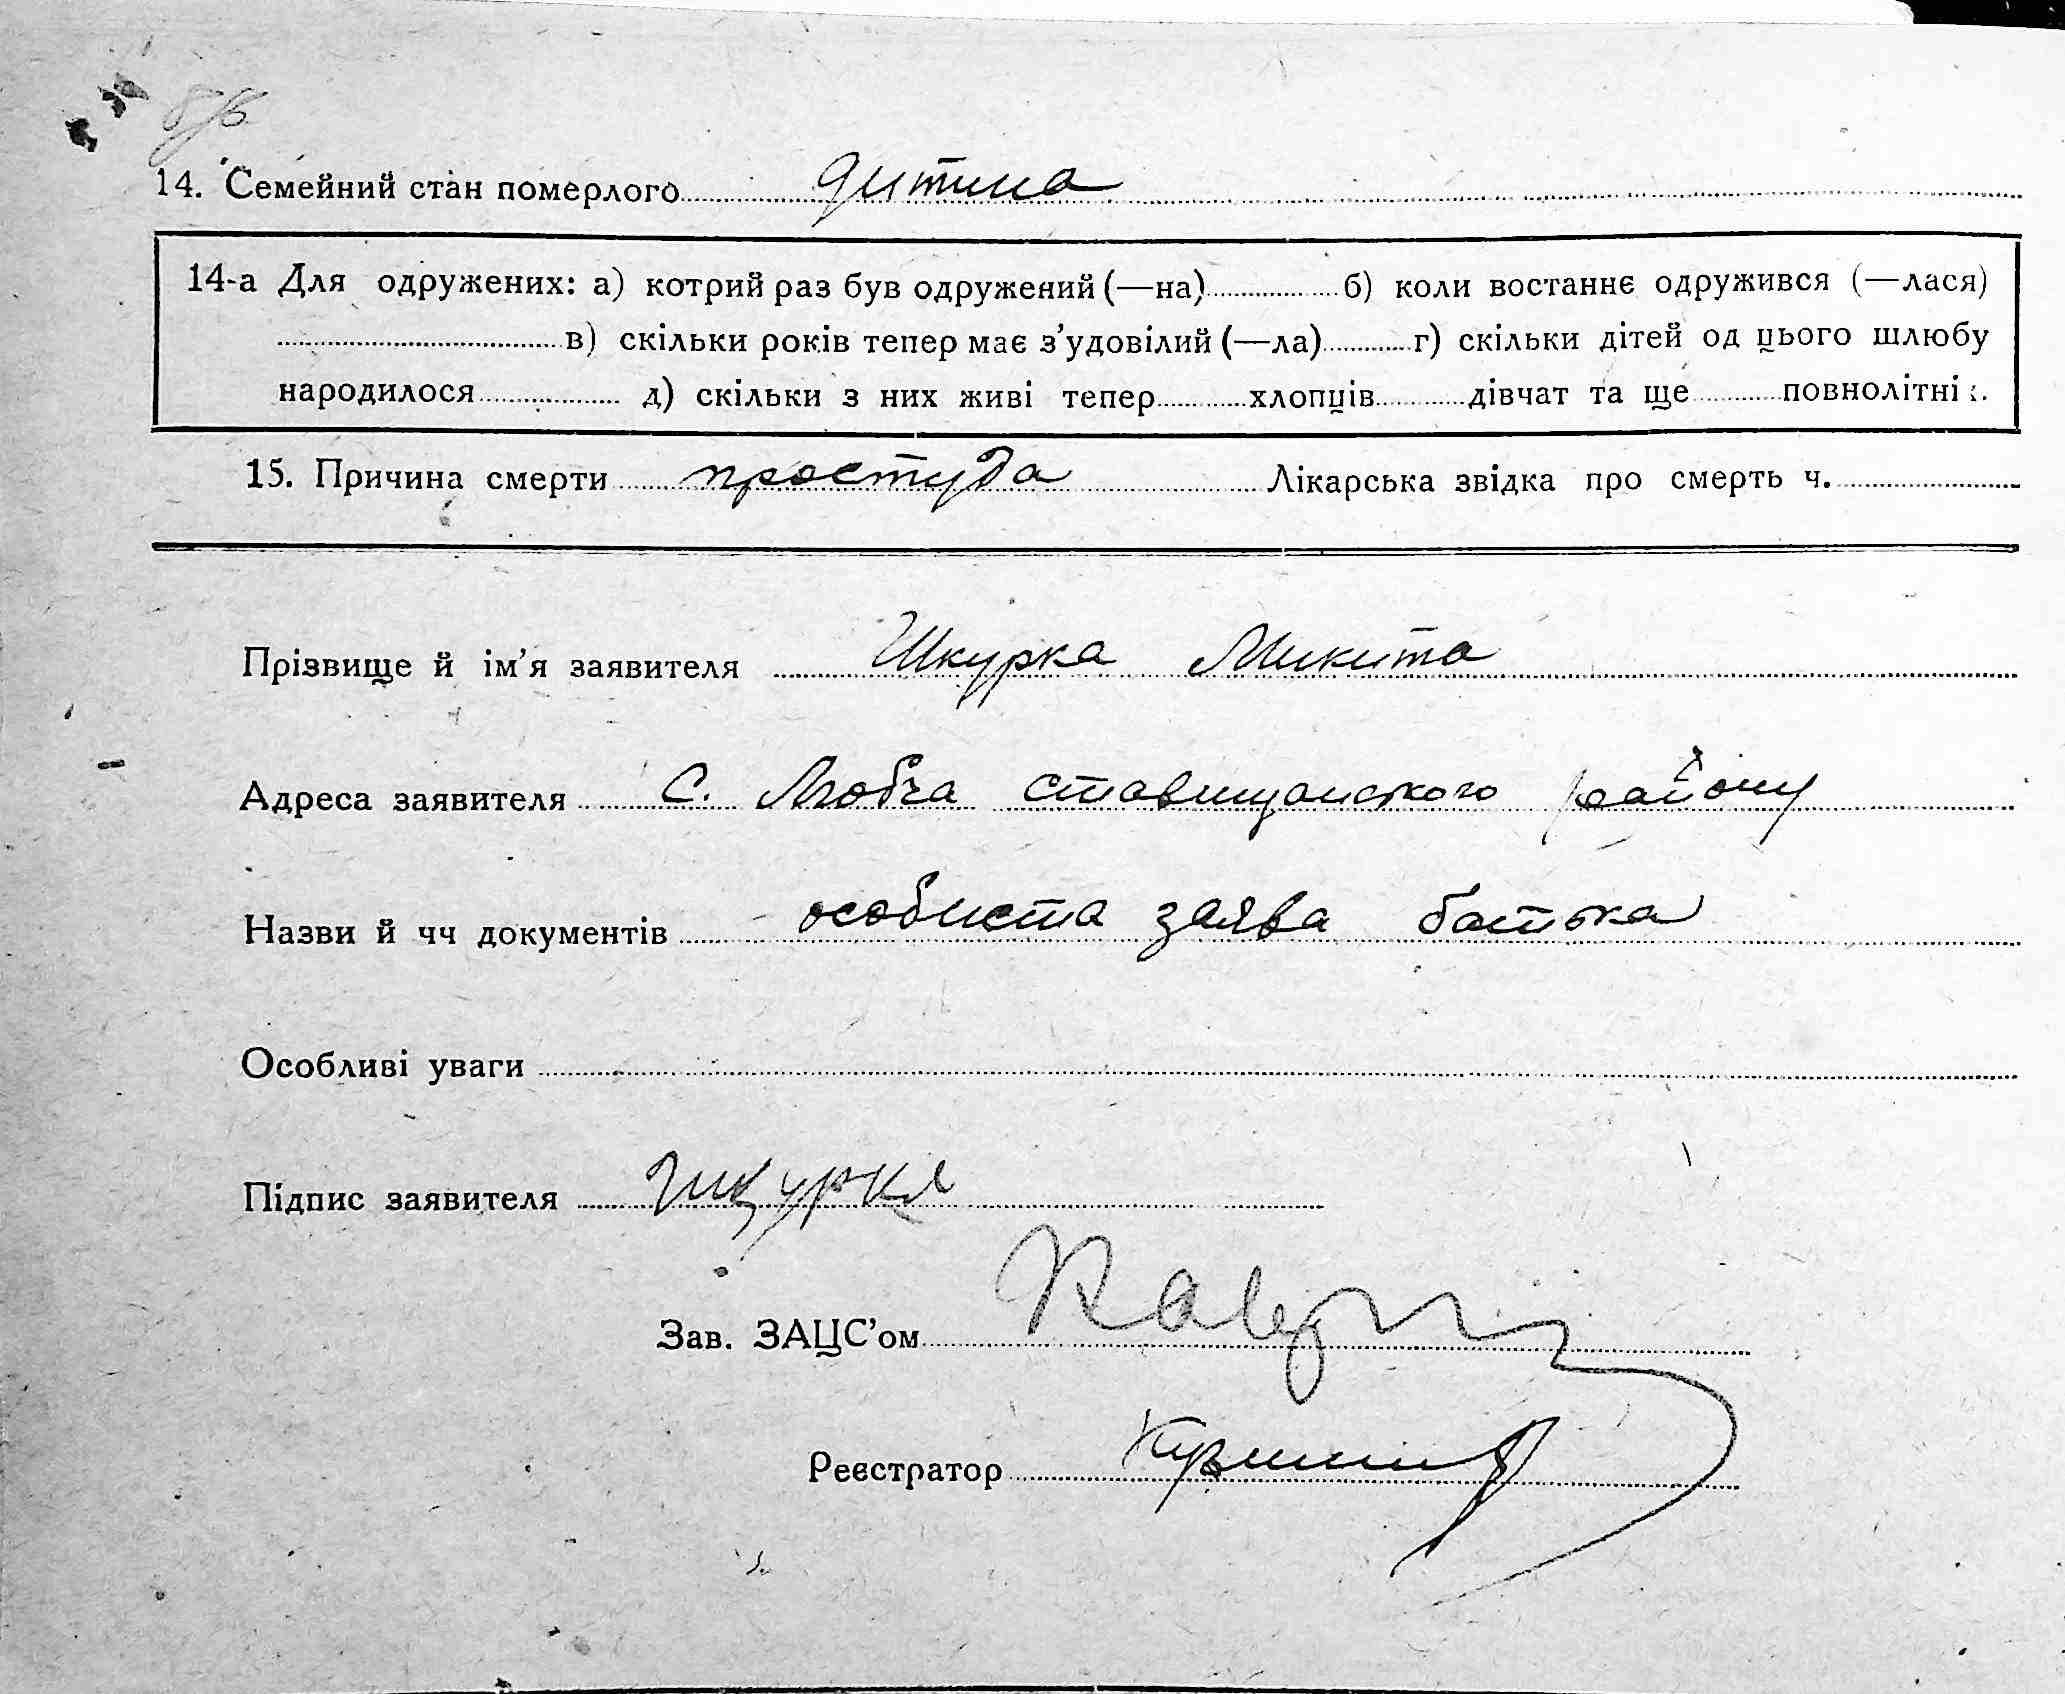 14. Семейний стан померлого дитина
14-а Для одружених: а) котрий раз був одружений (—на) б) коли востаннє одружився (—лася)
в) скільки років тепер має з’удовілий (—ла) г) скільки дітей од цього шлюбу
народилося д) скільки з них живі тепер хлопців дівчат та ще повнолітніх.
15. Причина смерти простуда Лікарська звідка про смерть ч.
Прізвище й ім’я заявителя Шкурка Микита
Адреса заявителя С. Любча ставищанського району
Назви й чч документів особиста заява батька
Особливі уваги
Підпис заявителя Шкурка
Зав. ЗАЦС’ом
Реєстратор